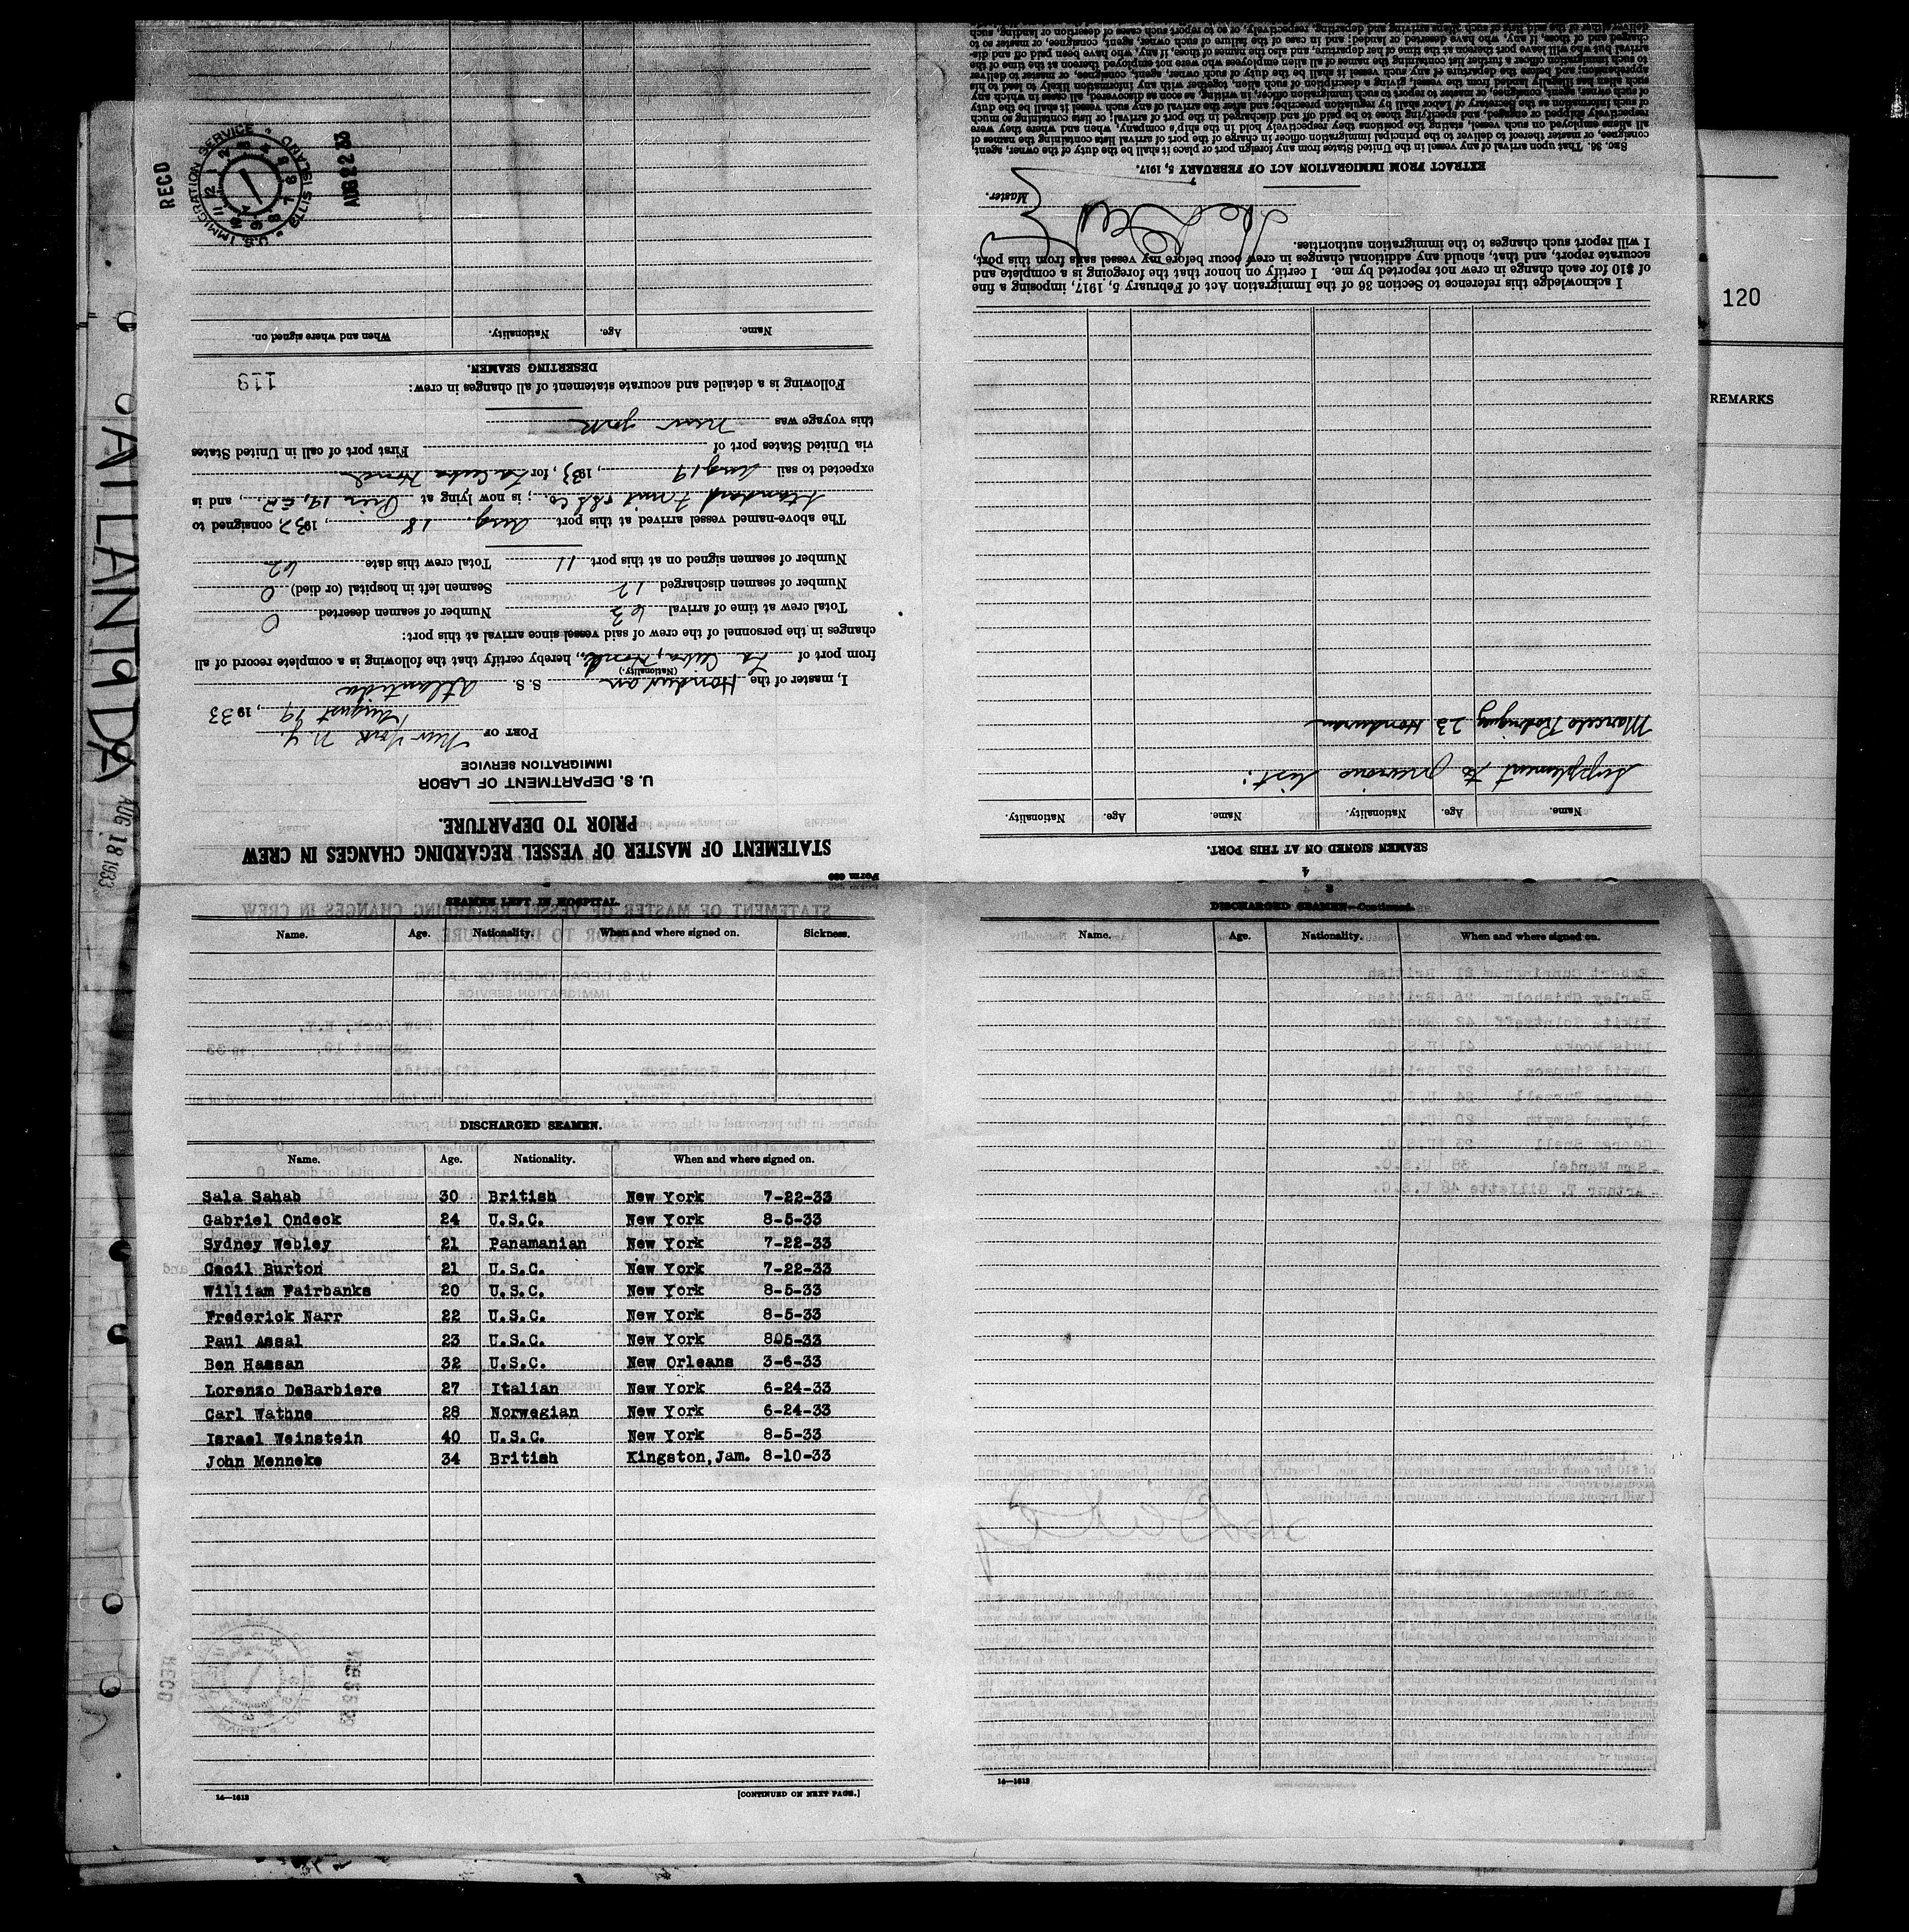 120
REMARKS
ATLANTIDA
AUG 18 1933
Form 689
STATEMENT OF MASTER OF VESSEL REGARDING CHANGES IN CREW
PRIOR TO DEPARTURE.
U. S. DEPARTMENT OF LABOR
IMMIGRATION SERVICE
PORT OF New York N.Y.
August 19, 1933
I, master of the Honduran S. S. Atlantida
(Nationality.)
from port of La Ceiba, Hond., hereby certify that the following is a complete record of all
changes in the personnel of the crew of said vessel since arrival at this port:
Total crew at time of arrival 63 Number of seamen deserted 0
Number of seamen discharged 12 Seamen left in hospital (or died) 0
Number of seamen signed on at this port 11 Total crew this date 62
The above-named vessel arrived at this port Aug. 18, 1933, consigned to
Standard Fruit & SS Co.; is now lying at Pier 19, E.R., and is
expected to sail Aug 19, 1933, for La Ceiba Hond.
via United States port of First port of call in United States
this voyage was New York
Following is a detailed and accurate statement of all changes in crew:
119
DESERTING SEAMEN.
Name. Age. Nationality. When and where signed on.
RECD
U.S. IMMIGRATION SERVICE • ELLIS ISLAND
AUG 22 33
4
SEAMEN SIGNED ON AT THIS PORT.
Name. Age. Nationality. Name. Age. Nationality.
Supplement to previous list:
Marcelo Rodriguez 23 Honduran
I acknowledge this reference to Section 36 of the Immigration Act of February 5, 1917, imposing a fine
of $10 for each change in crew not reported by me. I certify on honor that the foregoing is a complete and
accurate report, and that, should any additional changes in crew occur before my vessel sails from this port,
I will report such changes to the immigration authorities.
Master.
EXTRACT FROM IMMIGRATION ACT OF FEBRUARY 5, 1917.
SEC. 36. That upon arrival of any vessel in the United States from any foreign port or place it shall be the duty of the owner, agent,
consignee, or master thereof to deliver to the principal immigration officer in charge of the port of arrival lists containing the names of
all aliens employed on such vessel, stating the positions they respectively hold in the ship's company, when and where they were
respectively shipped or engaged, and specifying those to be paid off and discharged in the port of arrival; or lists containing so much
of such information as the Secretary of Labor shall by regulation prescribe; and after the arrival of any such vessel it shall be the duty
of such owner, agent, consignee, or master to report to such immigration officer, in writing, as soon as discovered, all cases in which any
such alien has illegally landed from the vessel, giving a description of such alien, together with any information likely to lead to his
apprehension; and before the departure of any such vessel it shall be the duty of such owner, agent, consignee, or master to deliver
to such immigration officer a further list containing the names of all alien employees who were not employed thereon at the time of the
arrival but who will leave port thereon at the time of her departure, and also the names of those, if any, who have been paid off and dis-
charged and of those, if any, who have deserted or landed; and in case of the failure of such owner, agent, consignee, or master so to
SEAMEN LEFT IN HOSPITAL
Name. Age. Nationality. When and where signed on. Sickness.
DISCHARGED SEAMEN.
Name. Age. Nationality. When and where signed on.
Sala Sahab 30 British New York 7-22-33
Gabriel Ondeck 24 U.S.C. New York 8-5-33
Sydney Webley 21 Panamanian New York 7-22-33
Cecil Burton 21 U.S.C. New York 7-22-33
William Fairbanks 20 U.S.C. New York 8-5-33
Frederick Narr 22 U.S.C. New York 8-5-33
Paul Assal 23 U.S.C. New York 805-33
Ben Hassan 32 U.S.C. New Orleans 3-6-33
Lorenzo DeBarbiere 27 Italian New York 6-24-33
Carl Wathne 28 Norwegian New York 6-24-33
Israel Weinstein 40 U.S.C. New York 8-5-33
John Menneke 34 British Kingston, Jam. 8-10-33
14—1613
[CONTINUED ON NEXT PAGE.]
3
DISCHARGED SEAMEN—Continued.
Name. Age. Nationality. When and where signed on.
14—1613